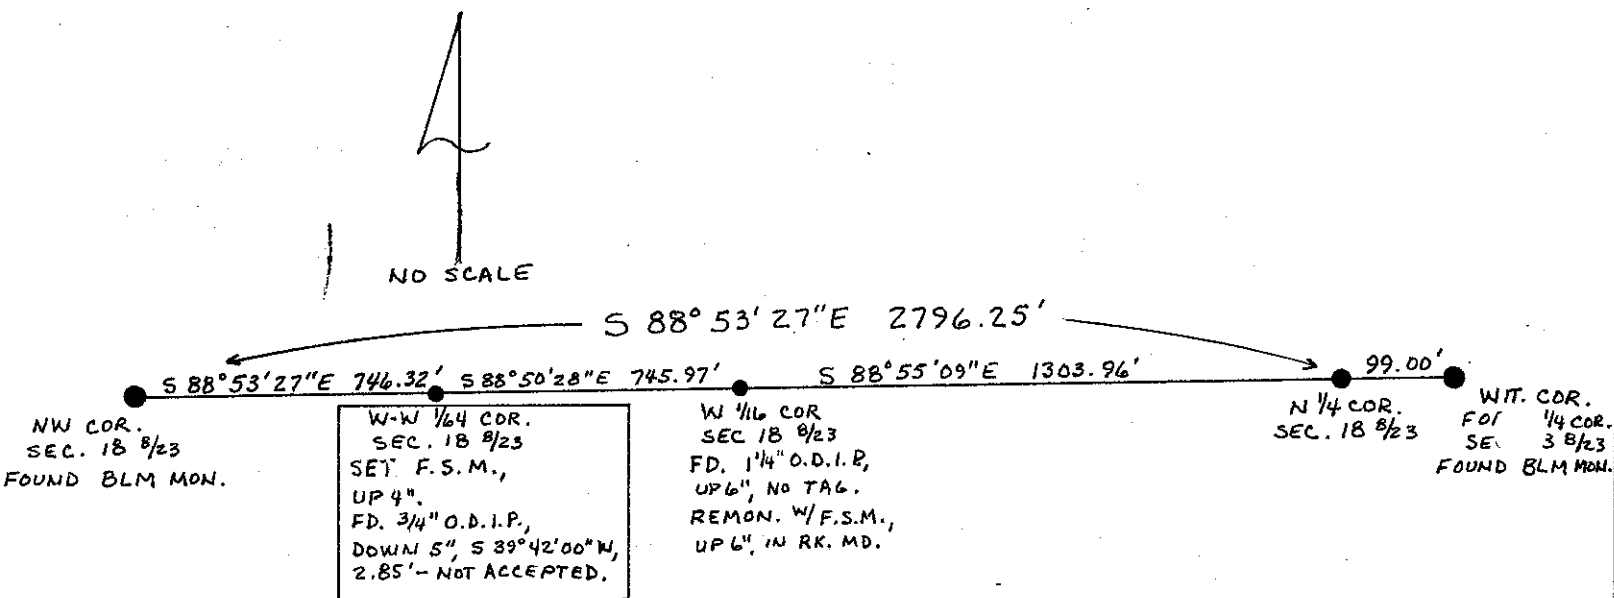 NO SCALE
S 88° 53' 27" E 2796.25'
S 88° 53' 27" E 746.32'
S 88° 50' 28" E 745.97'
S 88° 55' 09" E 1303.96'
99.00'
NW COR.
SEC. 18 8/23
FOUND BLM MON.
W-W 1/64 COR.
SEC. 18 8/23
SET F.S.M.,
UP 4".
FD. 3/4" O.D.I.P.,
DOWN 5", S 39° 42' 00" W,
2.85' - NOT ACCEPTED.
W 1/16 COR
SEC 18 8/23
FD. 1 1/4" O.D.I.P.,
UP 6", NO TAG.
REMON. W/ F.S.M.,
UP 6", IN RK. MD.
N 1/4 COR.
SEC. 18 8/23
WIT. COR.
1/4 COR.
8/23
FOUND BLM MON.